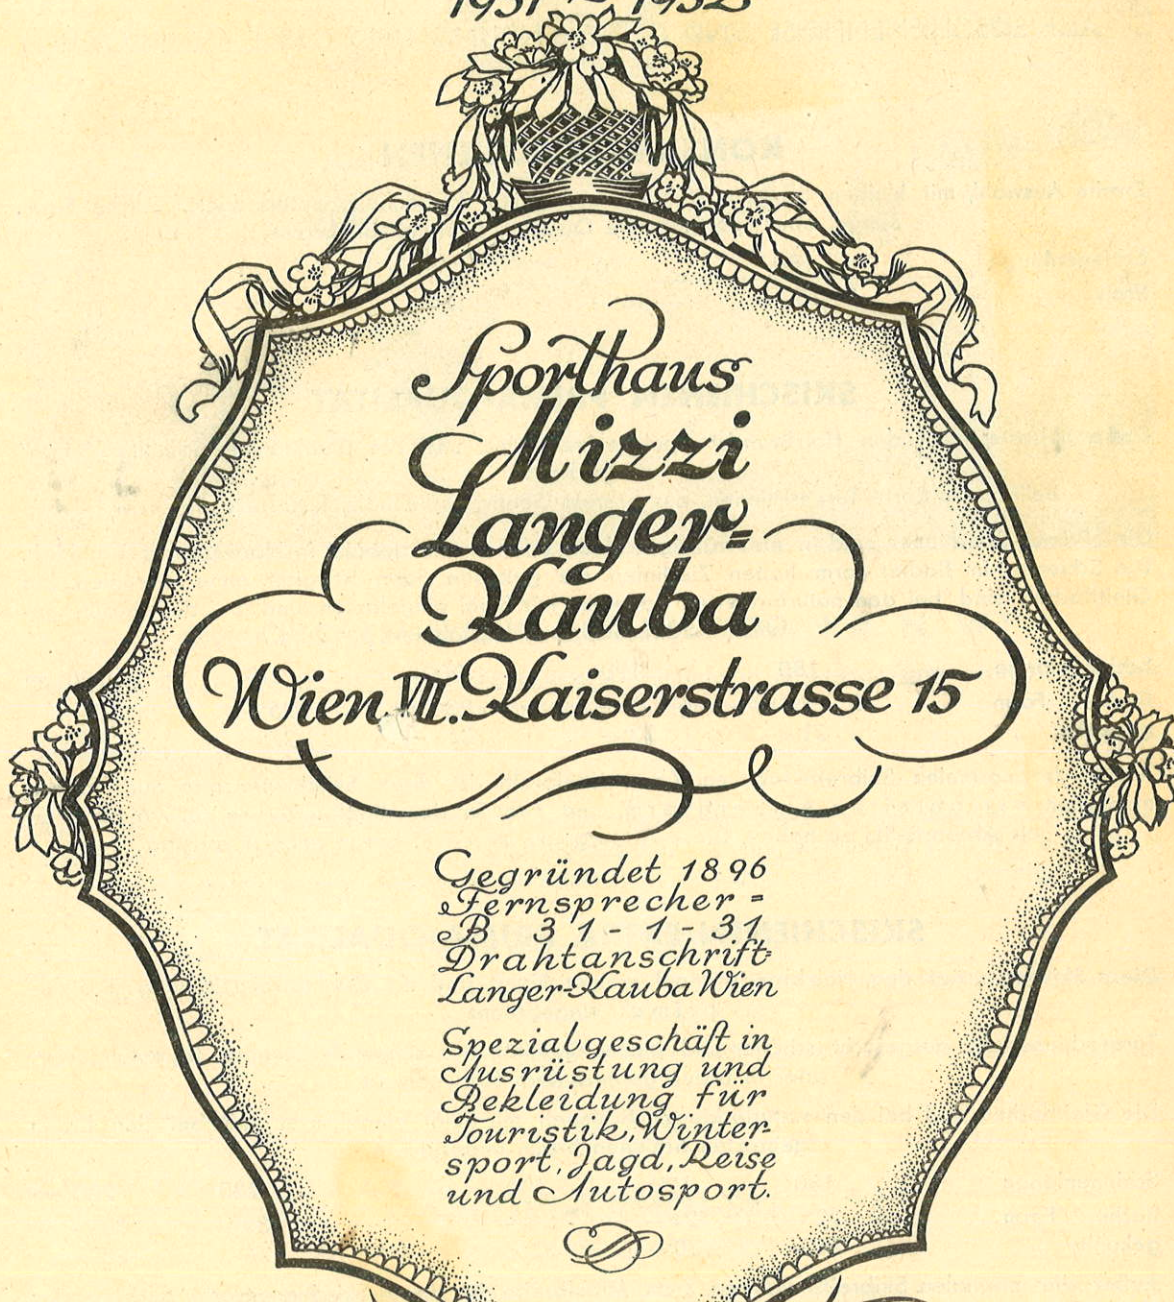 1931-1932
Sporthaus
Mizzi
Langer=
Kauba
Wien VII. Kaiserstrasse 15
Gegründet 1896
Fernsprecher =
B 31-1-31
Drahtanschrift=
Langer-Kauba Wien
Spezialgeschäft in
Ausrüstung und
Bekleidung für
Touristik, Winter-
sport, Jagd, Reise
und Autosport.